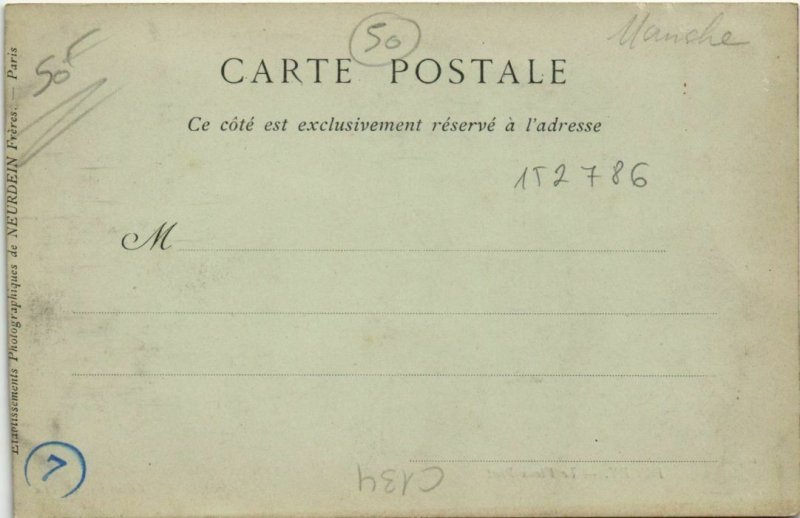 50
Manche
50F
CARTE POSTALE
Ce côté est exclusivement réservé à l'adresse
152786
M
Etablissements Photographiques de NEURDEIN Frères. — Paris
7
C134